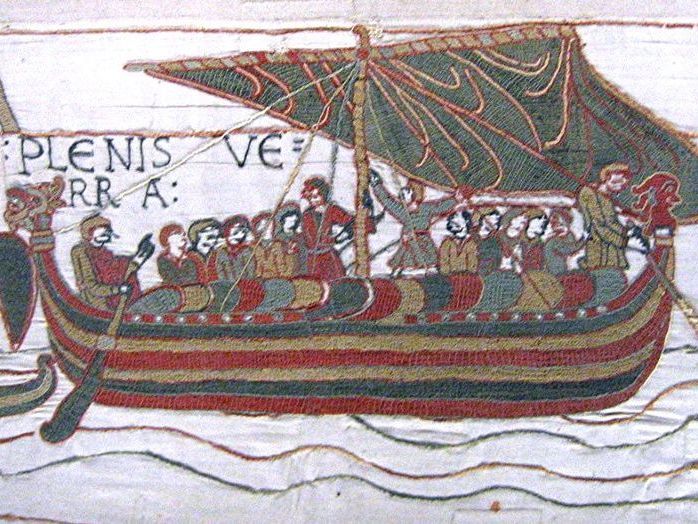 : PLENIS VE=
RR A: